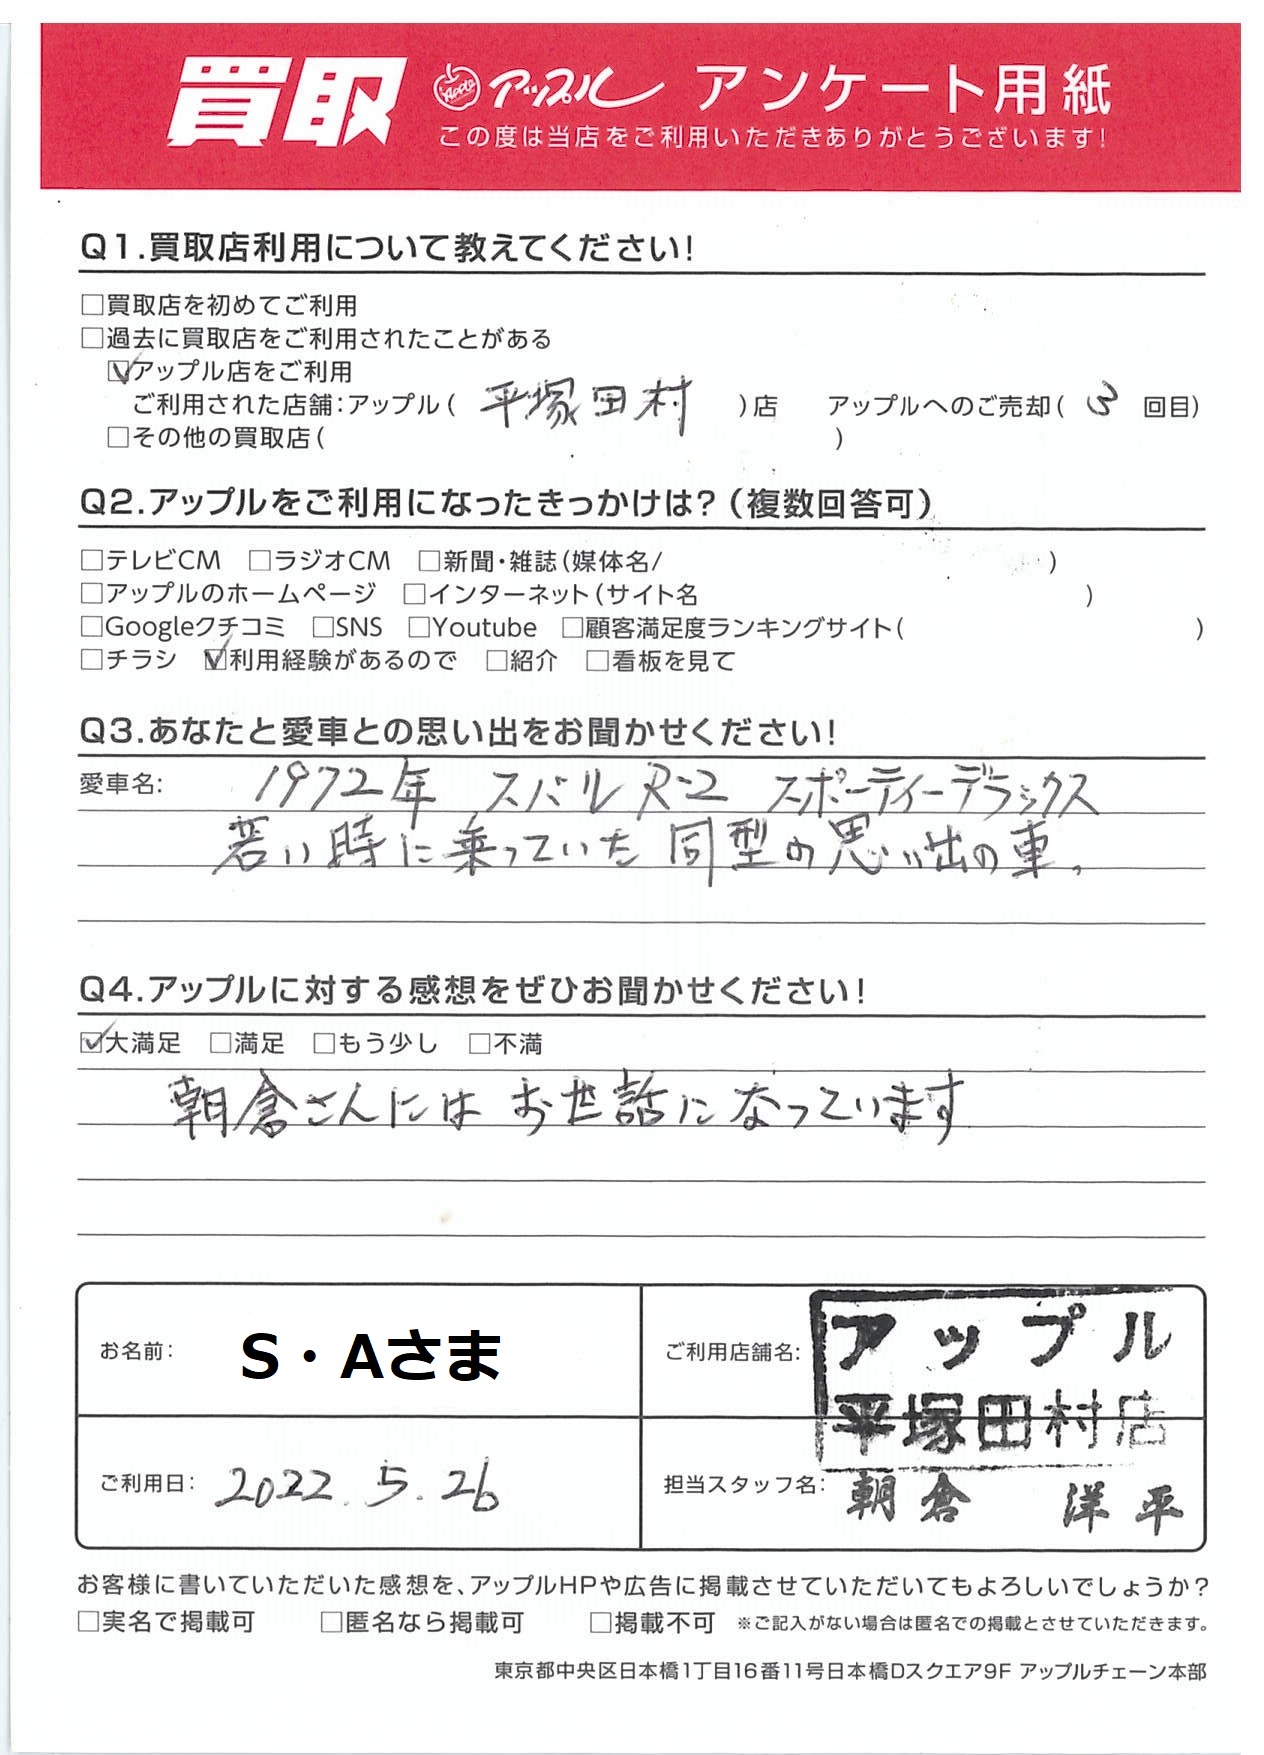 買取 Apple アップル アンケート用紙
この度は当店をご利用いただきありがとうございます!
Q1.買取店利用について教えてください!
□買取店を初めてご利用
□過去に買取店をご利用されたことがある
☑アップル店をご利用
ご利用された店舗:アップル( 平塚田村 )店 アップルへのご売却( 3 回目)
□その他の買取店( )
Q2.アップルをご利用になったきっかけは?(複数回答可)
□テレビCM □ラジオCM □新聞・雑誌(媒体名/ )
□アップルのホームページ □インターネット(サイト名 )
□Googleクチコミ □SNS □Youtube □顧客満足度ランキングサイト( )
□チラシ ☑利用経験があるので □紹介 □看板を見て
Q3.あなたと愛車との思い出をお聞かせください!
愛車名: 1972年 スバル R-2 スポーティーデラックス
若い時に乗っていた同型の思い出の車。
Q4.アップルに対する感想をぜひお聞かせください!
☑大満足 □満足 □もう少し □不満
朝倉さんにはお世話になっています
お名前: S・Aさま
ご利用店舗名: アップル
平塚田村店
ご利用日: 2022.5.26
担当スタッフ名: 朝倉 洋平
お客様に書いていただいた感想を、アップルHPや広告に掲載させていただいてもよろしいでしょうか?
□実名で掲載可 □匿名なら掲載可 □掲載不可 ※ご記入がない場合は匿名での掲載とさせていただきます。
東京都中央区日本橋1丁目16番11号日本橋Dスクエア9F アップルチェーン本部